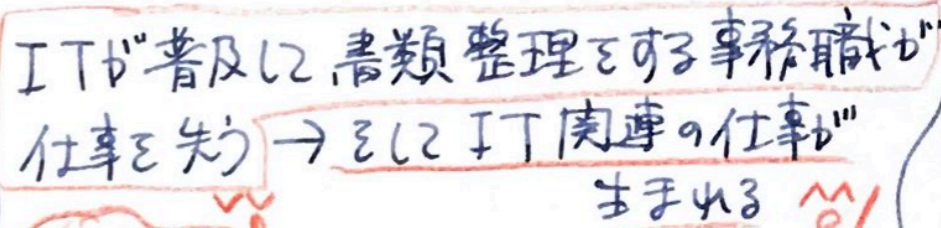 ITが普及して書類整理をする事務職が
仕事を失う→そしてIT関連の仕事が
生まれる